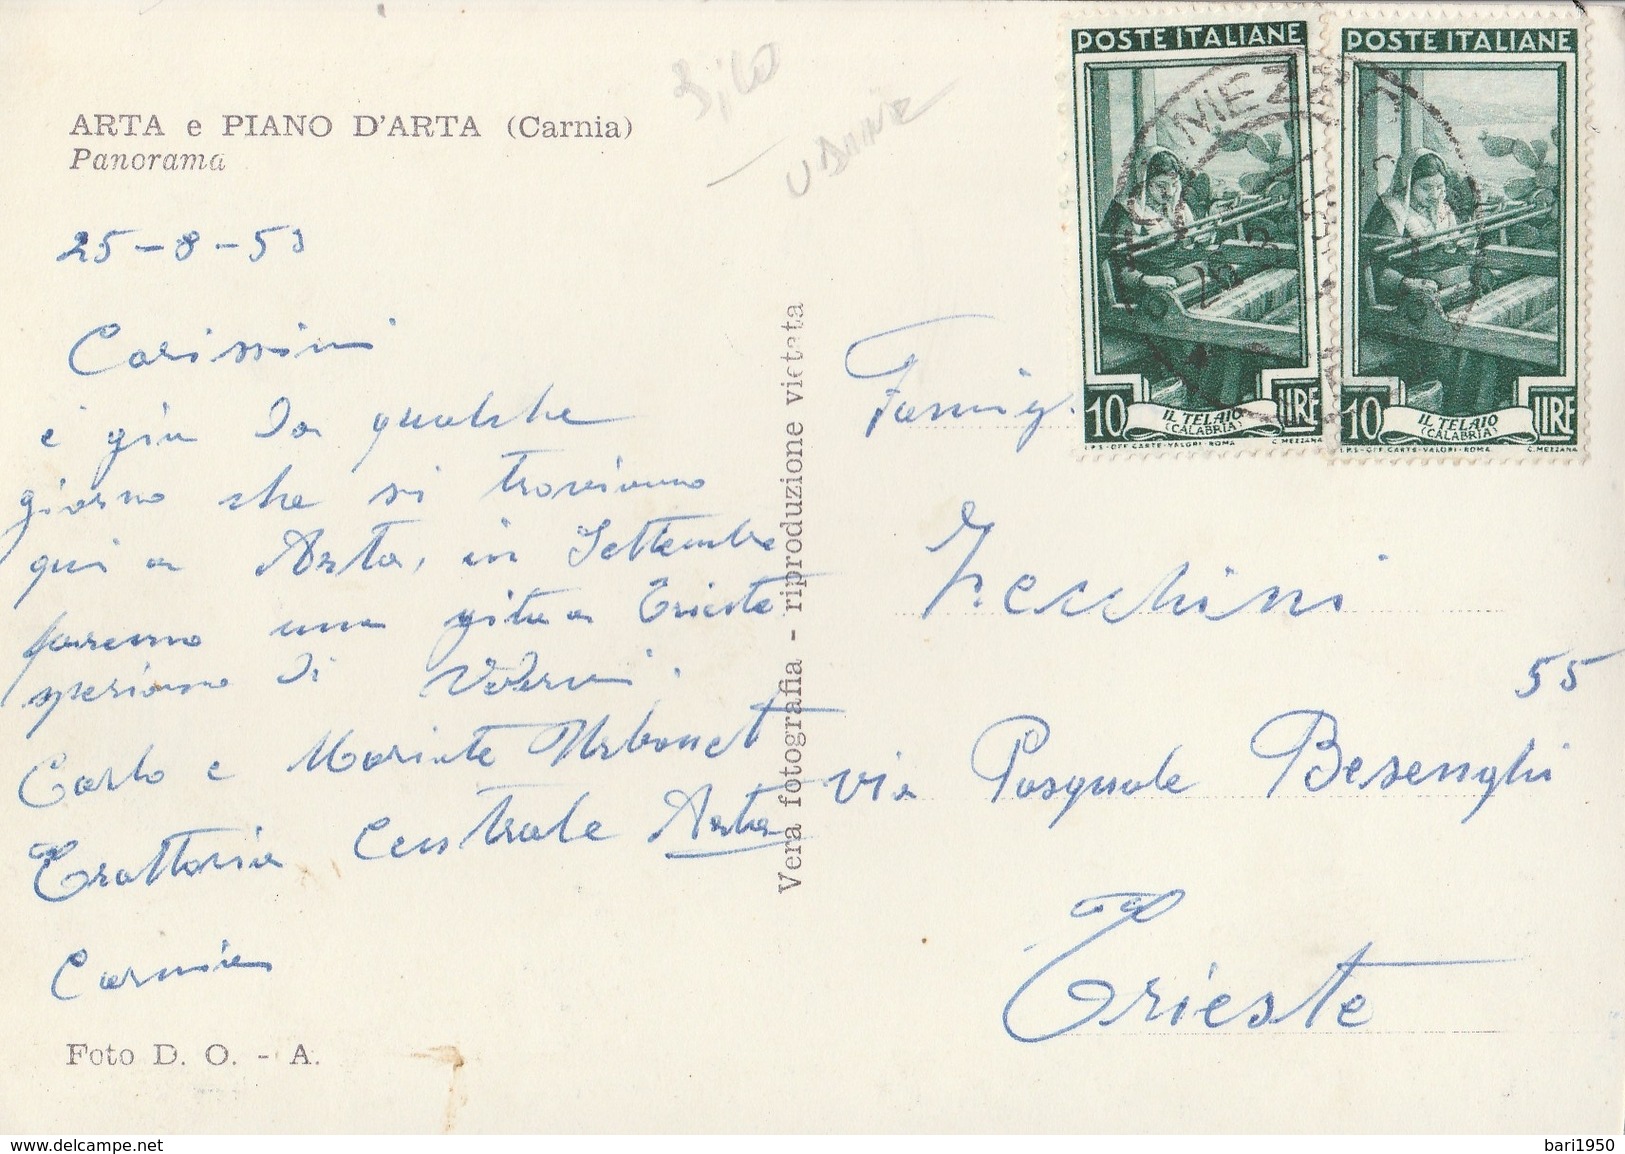 ARTA e PIANO D'ARTA (Carnia)
Panorama
25-8-53
Carissimi
è già da qualche
giorno che si troviamo
qui a Arta, in Settembre
faremo una gita a Trieste
speriamo di vederci.
Carlo e
Trattoria Centrale Arta
Carnia
Foto D. O. - A.
Vera fotografia - riproduzione vietata
3,00
UDINE
POSTE ITALIANE
10 IL TELAIO LIRE
(CALABRIA)
I.P.S-OFF. CARTE-VALORI-ROMA C. MEZZANA
POSTE ITALIANE
10 IL TELAIO LIRE
(CALABRIA)
I.P.S-OFF. CARTE-VALORI-ROMA C. MEZZANA
Famig.
Zecchini
55
via Pasquale Besenghi
Trieste
bari1950